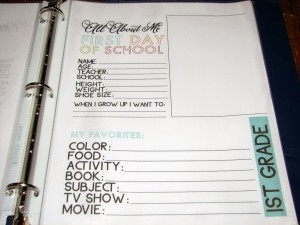 All About Me
FIRST DAY
OF SCHOOL
NAME:
AGE:
TEACHER:
SCHOOL:
HEIGHT:
WEIGHT:
SHOE SIZE:
WHEN I GROW UP I WANT TO:
MY FAVORITES:
COLOR:
FOOD:
ACTIVITY:
BOOK:
SUBJECT:
TV SHOW:
MOVIE:
1ST GRADE